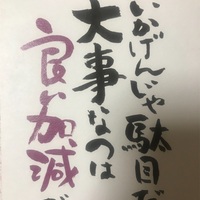 いかげんじゃ駄目だ
大事なのは
良い加減だ